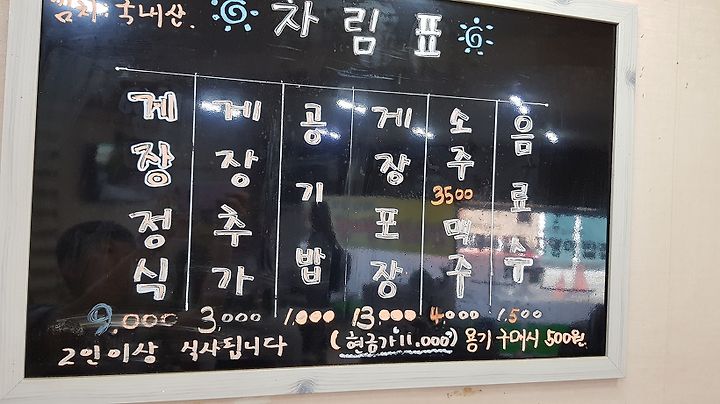 김치 국내산.
차림표
게장정식 9.000
게장추가 3,000
공기밥 1.000
게장포장 13.000
소주 3500
맥주 4.000
음료수 1.500
2인이상 식사됩니다
(현금가 11.000) 용기 구매시 500원